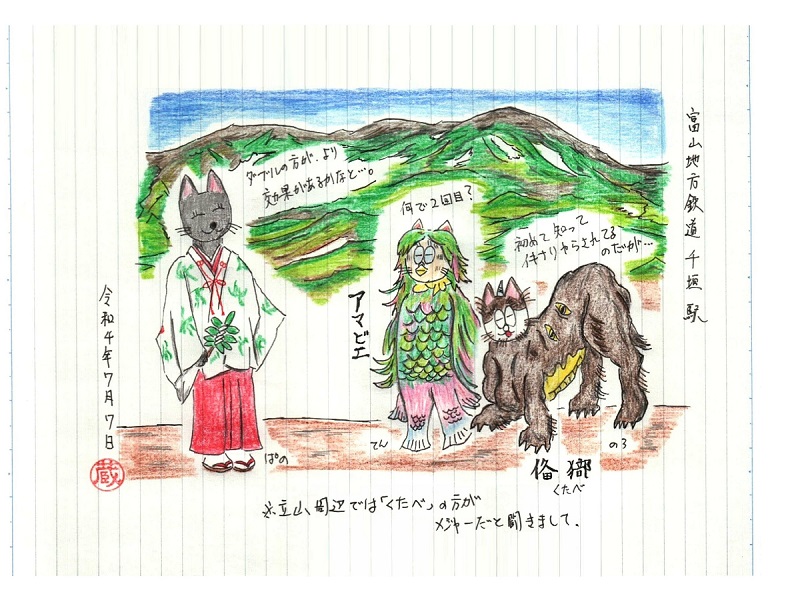 富山地方鉄道 千垣駅
ダブルの方が、より
効果があるかなと…。
何で2回目?
初めて知って
イキナリやらされてる
のだが…
アマビエ
令和4年7月7日
蔵
ぱの
てん
のろ
くたべ
※立山周辺では「くたべ」の方が
メジャーだと聞きまして、